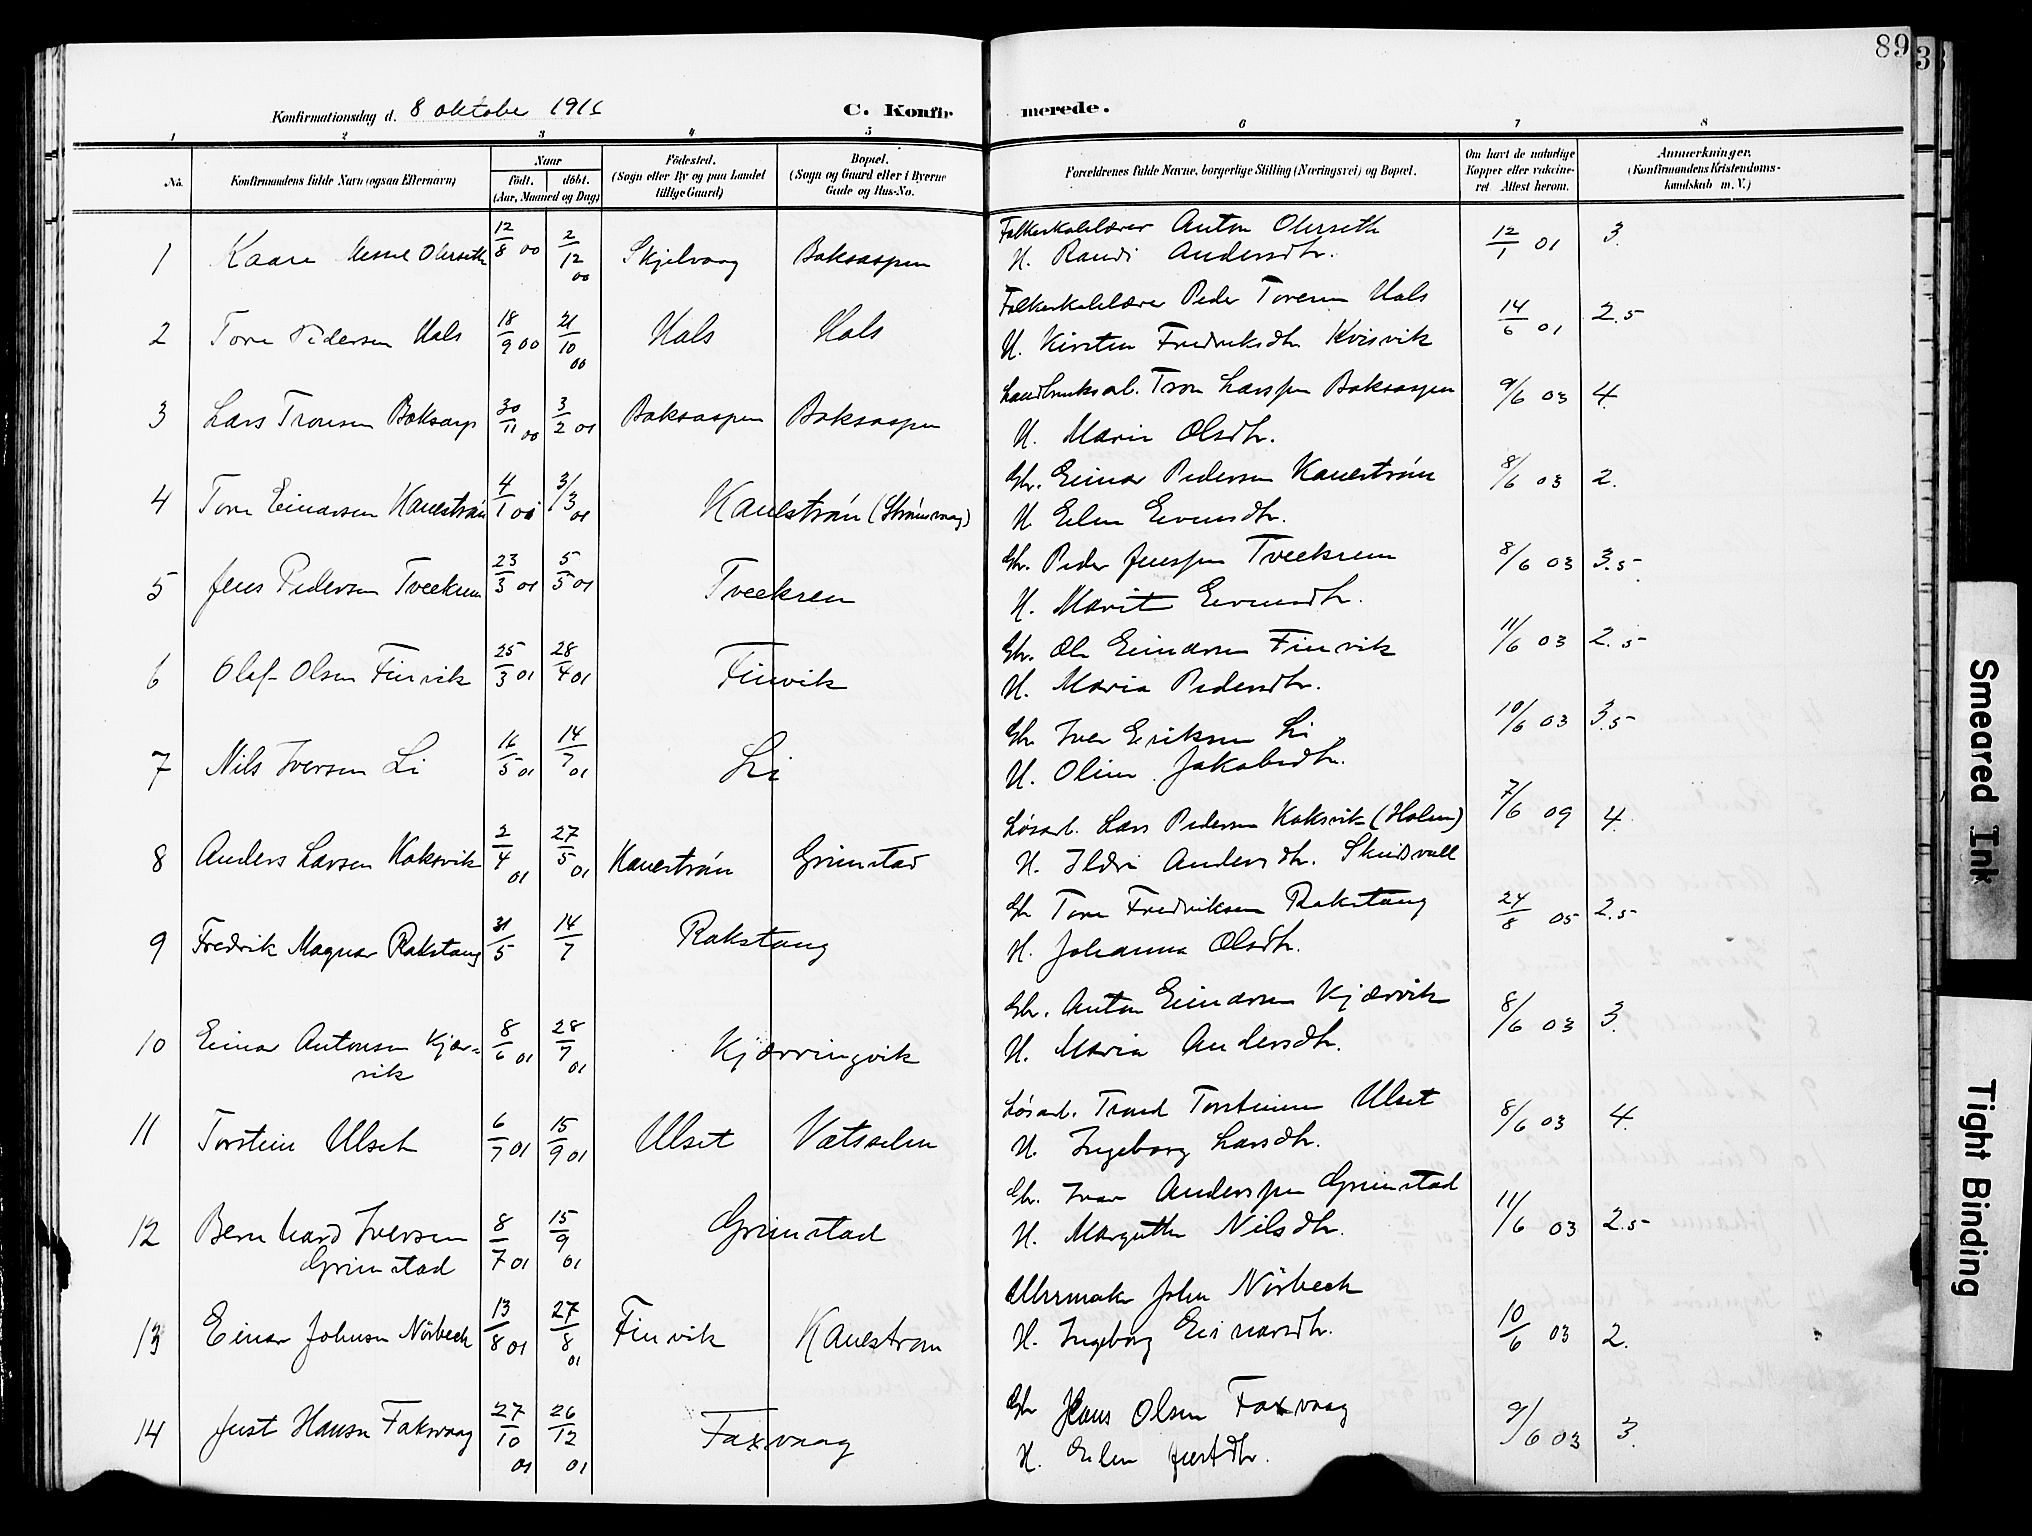 89
3
Konfirmationsdag d. 8 oktober 1916
C. Konfirmerede.
1 2 3 4 5 6 7 8
No.
Konfirmandens fulde Navn (ogsaa Efternavn)
Naar
Født. døbt.
(Aar, Maaned og Dag)
Fødested.
(Sogn eller By og paa Landet
tillige Gaard)
Bopæl.
(Sogn og Gaard eller i Byerne
Gade og Hus-No.
Forældrenes fulde Navne, borgerlige Stilling (Næringsvei) og Bopæl.
Om havt de naturlige
Kopper eller vaccineret
Attest herom.
Anmærkninger.
(Konfirmandens Kristendomskundskab
m. V.)
1 Kaare Olerseth 12/8 00 2/12 00 Skjelvaag Boksaspen Folkeskolelærer Anton Olerseth 12/1 01 3.
H. Randi Andersdtr.
2 Tore Pedersen Hals 18/9 00 21/10 00 Hals Hals Folkeskolelærer Peder Toresen Hals 14/6 01 2.5
H. Kirsten Fredriksdtr Kvisvik
3 Lars Tronsen Boksasp 30/11 00 3/2 01 Boksaspen Boksaspen Landbruksarb. Tron Larssen Boksaspen 9/6 03 4.
H. Marie Olsdtr.
4 Tore Einarsen Kanestrøm 4/1 01 3/3 01 Kanestrøm (Strømsvaag) Gbr. Einar Pedersen Kanestrøm 8/6 03 2.
H Elen Evensdtr.
5 Jens Pedersen Tveekrem 23/3 01 5/5 01 Tveekrem Gbr. Peder Jenssen Tveekrem 8/6 03 3.5
H. Marit Evensdtr.
6 Olaf Olsen Finvik 25/3 01 28/4 01 Finvik Gbr. Ole Einarsen Finvik 11/6 03 2.5
H. Maria Pedersdtr.
7 Nils Iversen Li 16/5 01 14/7 01 Li Gbr Iver Eriksen Li 10/6 03 3.5
H. Oline Jakobsdtr.
8 Anders Larsen Koksvik 2/4 01 27/5 01 Kanestrøm Grimstad Løsarb. Lars Pedersen Koksvik (Holen) 7/6 09 4.
H. Ildri Andersdtr. Skudsvall
9 Fredrik Magnar Rakstang 31/5 14/7 Rakstang Gbr Tore Fredriksen Rakstang 24/8 05 2.5
H. Johanna Olsdtr.
10 Einar Antonsen Kjærvik 8/6 01 28/7 01 Kjærringvik Gbr. Anton Einarsen Kjærvik 8/6 03 3.
H. Maria Andersdtr.
11 Torstein Ulset 6/7 01 15/9 01 Ulset Vatsselen Løsarb. Trond Torsteinsen Ulset 8/6 03 4.
H. Ingeborg Larsdtr.
12 Bernhard Iversen Grimstad 8/7 01 15/9 01 Grimstad Gbr. Ivar Anderssen Grimstad 11/6 03 2.5
H. Margrethe Nilsdtr.
13 Einar Johnsen Nörbeck 13/8 01 27/8 01 Finvik Kanestrøm Uhrmaker John Nörbeck 10/6 03 2.
H. Ingeborg Einarsdtr.
14 Just Hansen Faksvaag 27/10 01 26/12 01 Faxvaag Gbr Hans Olsen Faxvaag 9/6 03 3.
H. Elen Justdtr.
Smeared Ink
Tight Binding